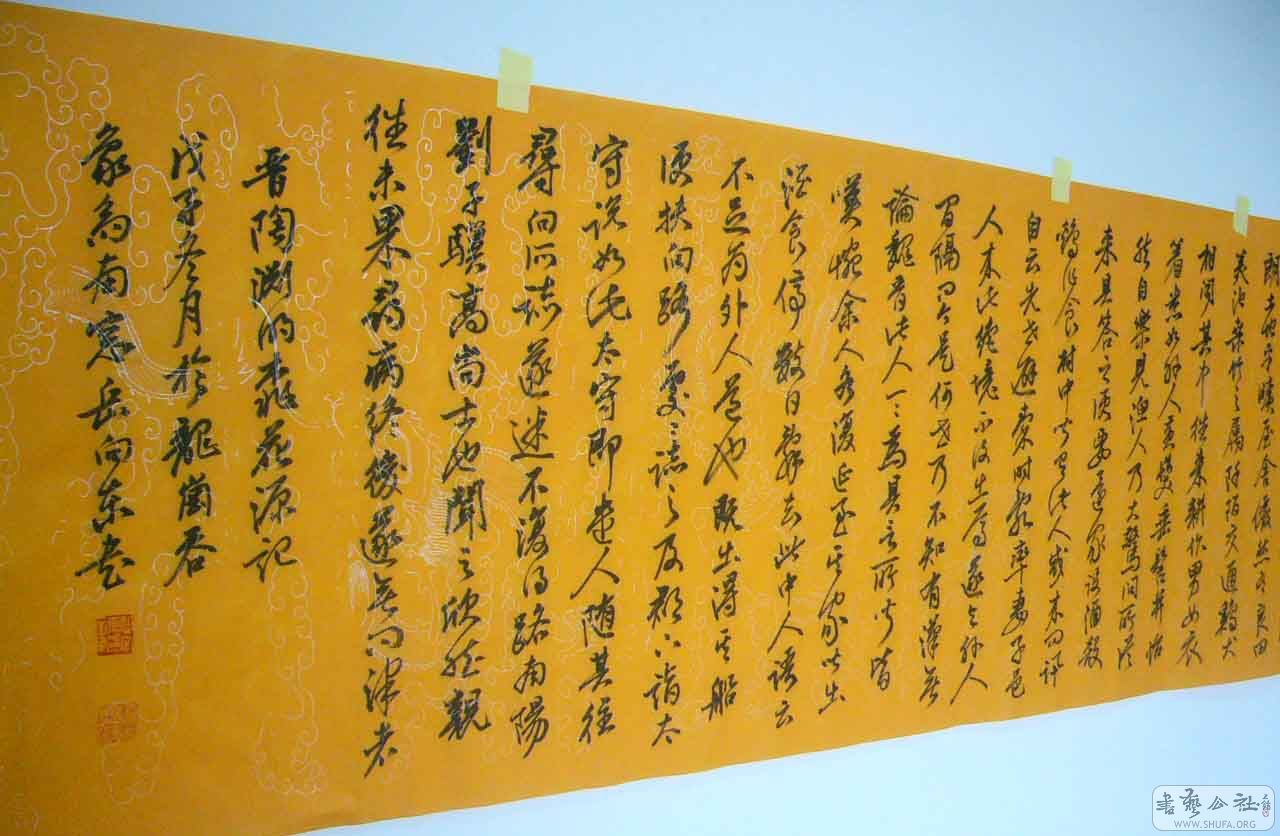 朗土地平曠屋舍儼然有良田
美池桑竹之屬阡陌交通鷄犬
相聞其中往來耕作男女衣
着悉如外人黄髮垂髫并怡
然自樂見漁人乃大驚問所從
来具答之便要還家設酒殺
鷄作食村中聞有此人咸来問訊
自云先世避秦時亂率妻子邑
人来此絶境不復出焉遂与外人
間隔問今是何世乃不知有漢無
論魏晋此人一一為具言所聞皆
嘆惋余人各復延至其家皆出
酒食停數日辭去此中人語云
不足為外人道也既出得其船
便扶向路處〻誌之及郡下詣太
守說如此太守即遣人隨其往
尋向所誌遂迷不復得路南陽
劉子驥高尚士也聞之欣然親
往未果尋病終後遂無問津者
晋陶渊明桃花源記
戊子冬月於龍崗谷
南窓岳向東書
書藝公社
WWW.SHUFA.ORG